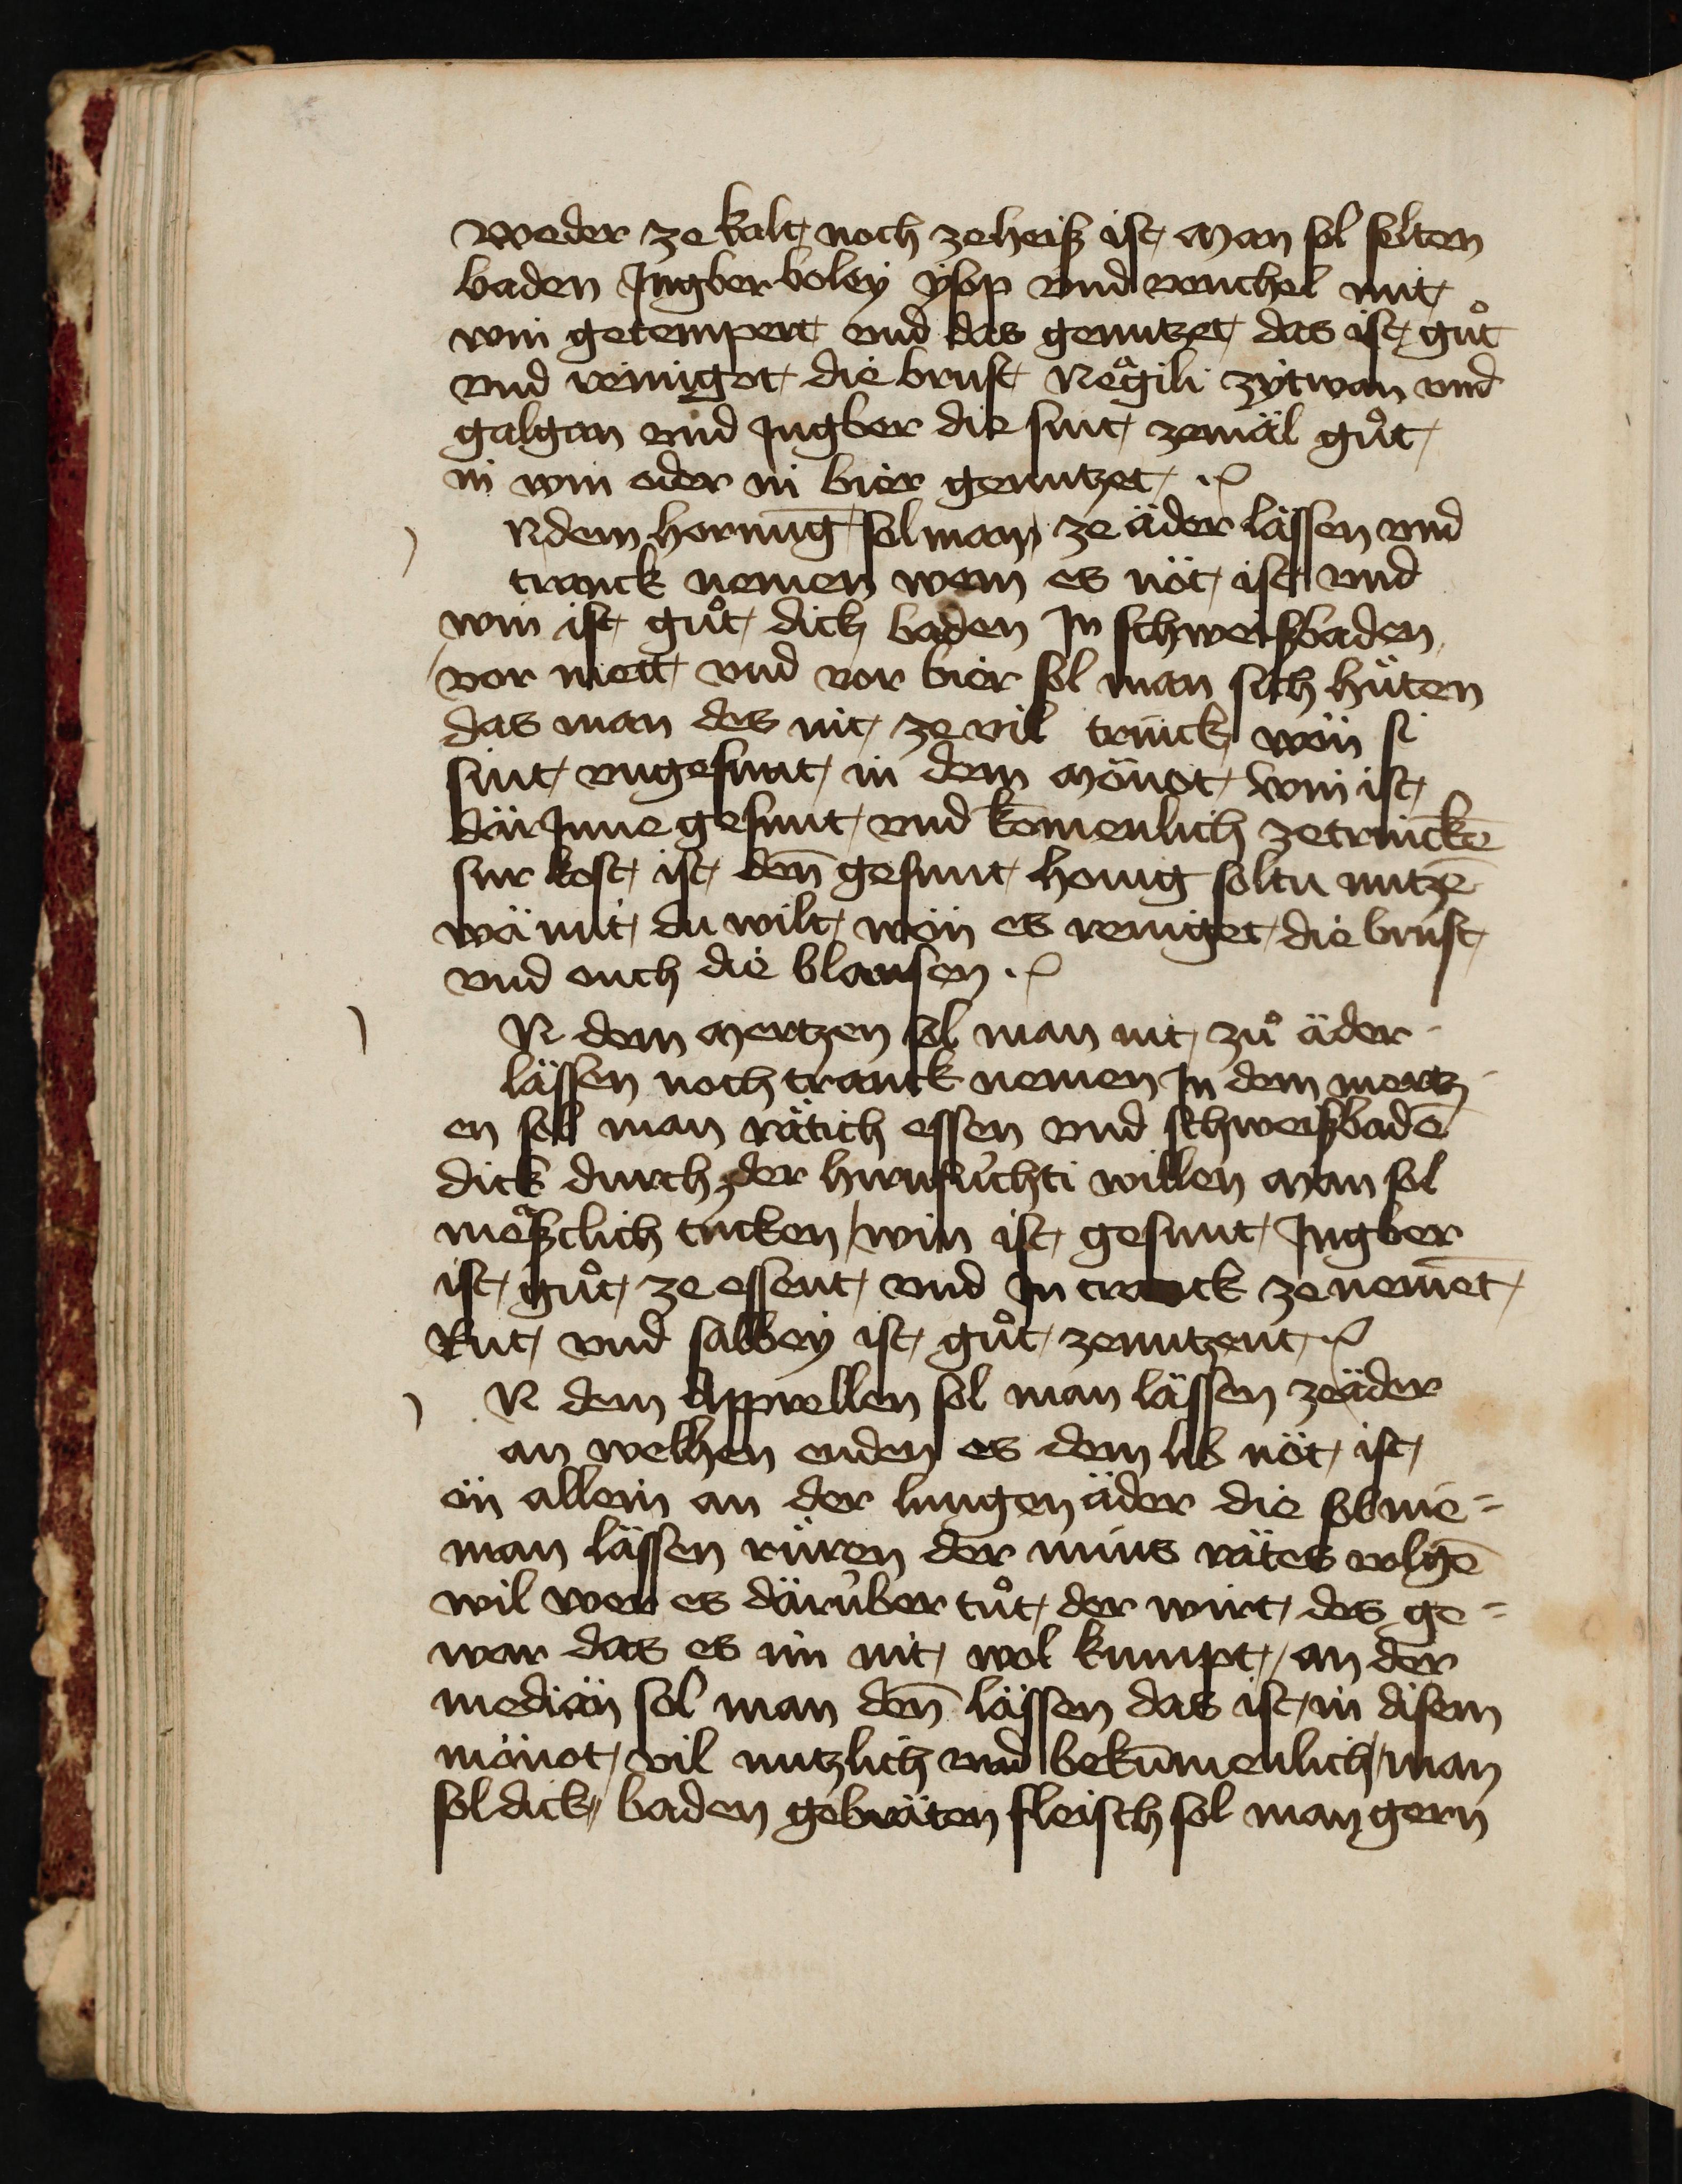 weder ze kalt noch ze heiß ist Man sol selten
baden Ingber boley ysop vnd venchel mit
win getempert vnd das genutzet das ist guͦt
vnd reiniget die brust Neͣgili zytwan vnd
galgan vnd Ingber die sint zemäl guͦt
in win oder in bier genutzet
N dem hornūg sol man ze äder lässen vnd
tranck nemen wem es nöt ist vnd
win ist guͦt dick baden In schweißbaden
vor mett vnd vor bier sol man sich hüten
das man des nit ze vil trinck wön si
sint vngesunt in dem Mönot win ist
där Inne gesunt vnd komenlich ze trinckē
sur kost ist den̄ gesunt honig soltu nutzē
wä mit du wilt wön es reniget die brust
vnd ouch die blausen
N dem Mertzen sol man nit zuͦ äder
lässen noch tranck nemen In dem mertz
en sol man rätich essen vnd schweißbadē
dick durch der hirnsüchti willen Man sol
meͣßclich tricken / win ist gesunt Ingber
ist guͦt ze essent vnd In tranck ze nemēt
Rut vnd salbey ist guͦt ze nutzent
N dem Apprellen sol man lässen ze äder
an welhen enden es dem lib nöt ist
ön allein an der lungen äder die sol nie=
man lässen rüren der mins rätes volgē
wil wer es därüber tuͦt der wirt des ge=
war das es im nit wol kumpt / an der
mediän sol man den̄ lässen das ist in disem
mönot vil nutzlich vnd bekūmenlich / man
sol dick baden gebräten fleisch sol man gern